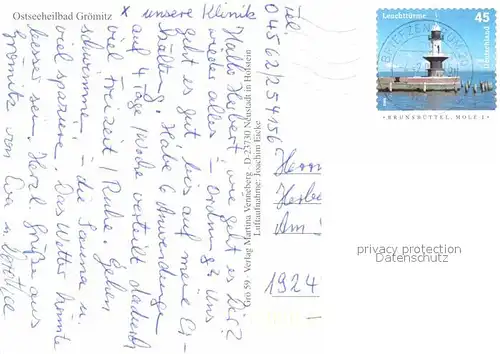 Ostseeheilbad Grömitz
x unsere Klinik
Tel.
04562/254156
Hallo Herbert, wie geht es Dir?
wieder alles in Ordnung? Uns
geht es gut bis auf meine Er-
kältung. Habe 6 Anwendungen
auf 4 Tage/Woche verteilt dadurch
viel Freizeit/Ruhe. Gehen
schwimmen, in die Sauna u.
viel spazieren. Das Wetter könnte
besser sein. Herzl. Grüße aus
Grömitz von Eva u. Dorothee
Grö 59 · Verlag Martina Venneberg · D-23730 Neustadt in Holstein
Luftaufnahme: Joachim Eicke
Leuchttürme
45
Deutschland
BRIEFZENTRUM
BRUNSBÜTTEL, MOLE 1
Herrn
Herbe
Am
1924
privacy protection
Datenschutz